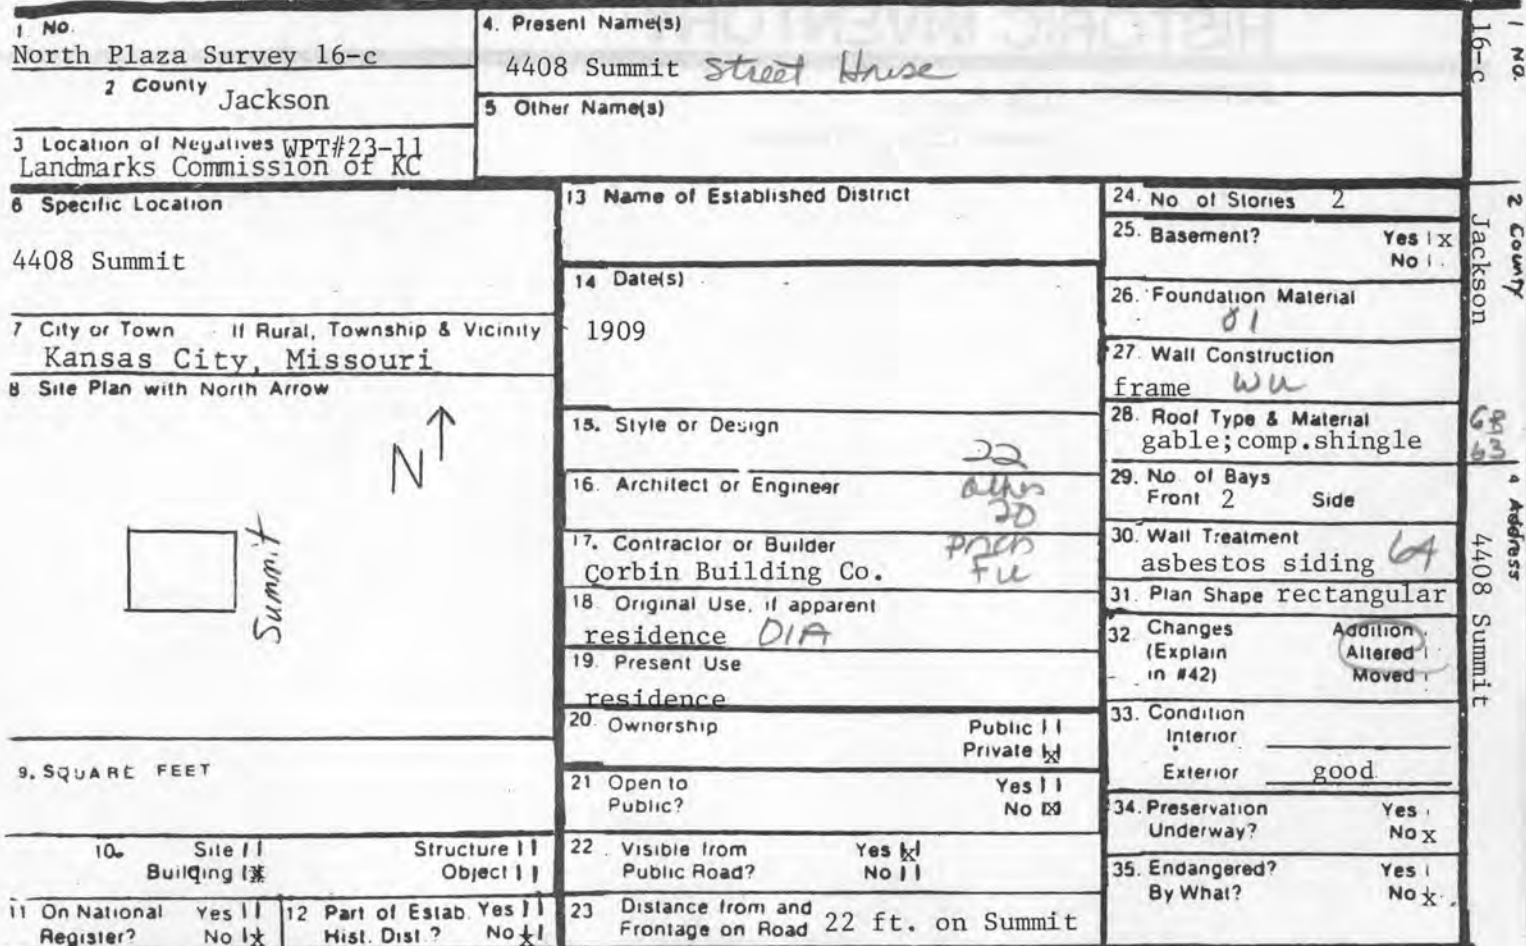 1 No.
North Plaza Survey 16-c
2 County Jackson
3 Location of Negatives WPT#23-11
Landmarks Commission of KC
4. Present Name(s)
4408 Summit Street House
5 Other Name(s)
6 Specific Location
4408 Summit
7 City or Town If Rural, Township & Vicinity
Kansas City, Missouri
8 Site Plan with North Arrow
N
Summit
9. SQUARE FEET
10. Site Structure
Building x Object
11 On National Register? Yes No x
12 Part of Estab. Hist. Dist.? Yes No x
13 Name of Established District
14 Date(s)
1909
15. Style or Design
22
16. Architect or Engineer
other
20
17. Contractor or Builder
Corbin Building Co.
Prch
FU
18. Original Use, if apparent
residence 01A
19. Present Use
residence
20. Ownership Public
Private x
21 Open to Public? Yes
No x
22. Visible from Public Road? Yes x
No
23 Distance from and
Frontage on Road 22 ft. on Summit
24. No of Stories 2
25. Basement? Yes x
No
26. Foundation Material
01
27. Wall Construction
frame WU
28. Roof Type & Material
gable;comp.shingle
68
63
29. No. of Bays
Front 2 Side
30. Wall Treatment
asbestos siding 64
31. Plan Shape rectangular
32. Changes Addition
(Explain Altered
in #42) Moved
33. Condition
Interior
Exterior good
34. Preservation Yes
Underway? No x
35. Endangered? Yes
By What? No x
1 No.
16-c
2 County
Jackson
4 Address
4408 Summit